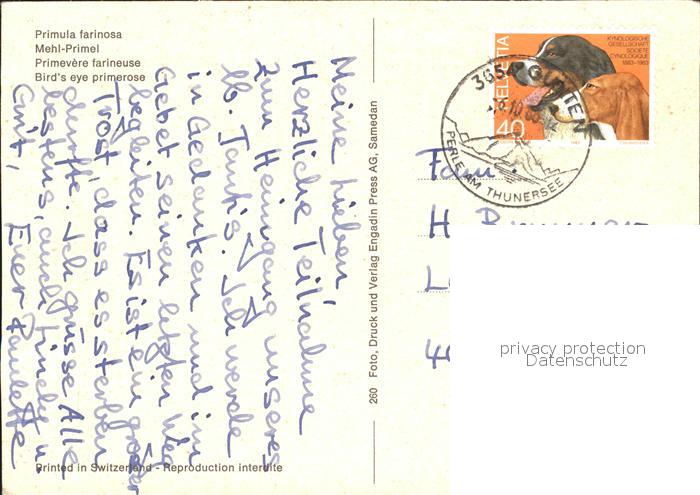 Primula farinosa
Mehl-Primel
Primevère farineuse
Bird's eye primerose
Meine Lieben,
Herzliche Teilnahme
zum Heimgang unseres
lb. Ich werde
in Gedanken und im
Gebet seinen letzten Weg
begleiten. Es ist ein grosser
Trost, dass es sterben
durfte. Ich grüsse Alle
bestens, auch u.
Grit,
Eure Paulette
Printed in Switzerland - Reproduction interdite
260 Foto, Druck und Verlag Engadin Press AG, Samedan
KYNOLOGISCHE
GESELLSCHAFT
SOCIETE
CYNOLOGIQUE
1883-1983
HELVETIA
40
3654 GUNTEN
PERLE AM THUNERSEE
Fam.
H.
L
privacy protection
Datenschutz